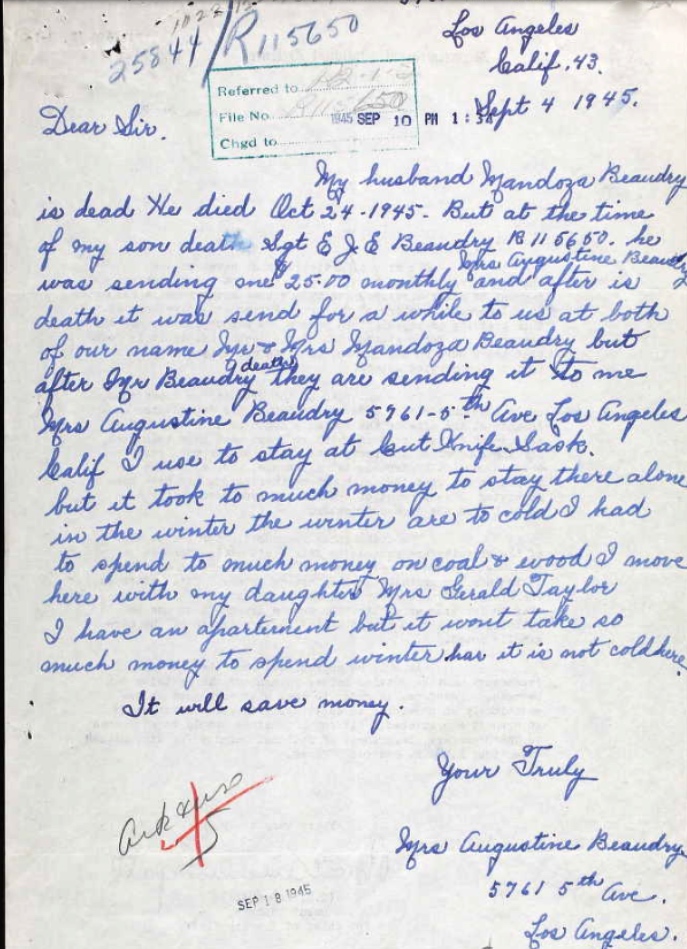 25844/R115650
Los Angeles
Calif. 43.
Sept 4 1945.
Referred to
File No. R115650
1945 SEP 10 PM 1:3
Chgd to
Dear Sir.
My husband Mandoza Beaudry
is dead He died Oct 24-1945. But at the time
of my son death Sgt E J E Beaudry R115650. he
was sending me $25.00 monthly Mrs Augustine Beaudry and after is
death it was send for a while to us at both
of our name Mr & Mrs Mandoza Beaudry but
after Mr Beaudry death they are sending it to me
Mrs Augustine Beaudry 5761-5th Ave Los Angeles
Calif I use to stay at Cut Knife Sask.
but it took to much money to stay there alone
in the winter the winter are to cold I had
to spend to much money on coal & wood I move
here with my daughter Mrs Gerald Taylor
I have an apartement but it wont take so
much money to spend winter har it is not cold here.
It will save money.
Your Truly
Mrs Augustine Beaudry
5761 5th Ave.
Los Angeles.
SEP 18 1945